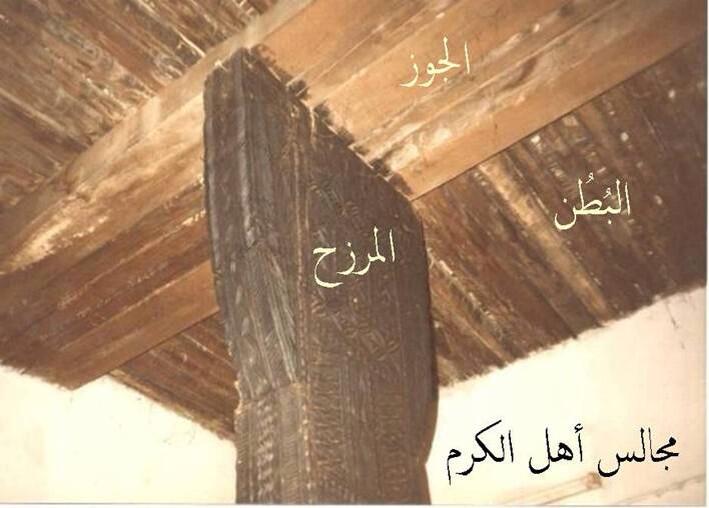 الجوز
البُطُن
المرزح
مجالس أهل الكرم